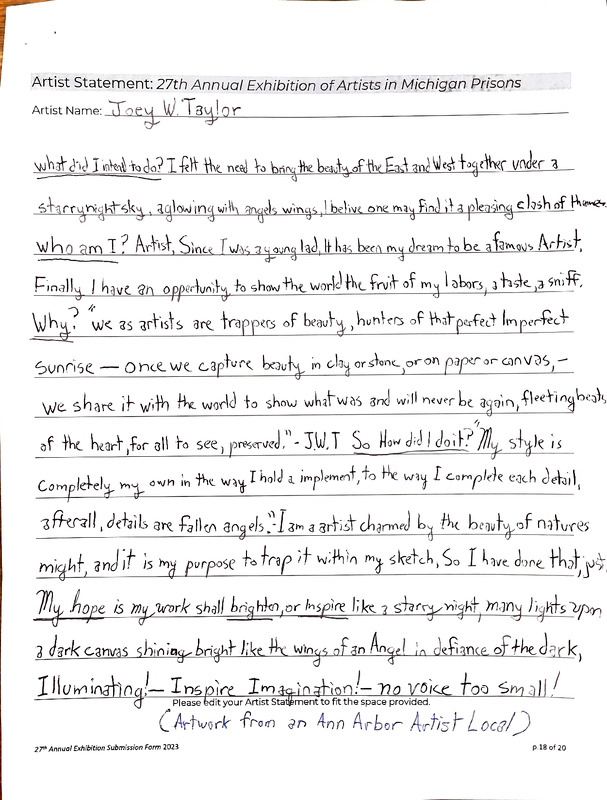 Artist Statement: 27th Annual Exhibition of Artists in Michigan Prisons
Artist Name: Joey W. Taylor
what did I intend to do? I felt the need to bring the beauty of the East and West together under a
starrynight sky, aglowing with angels wings, I belive one may find it a pleasing clash of themes.
who am I? Artist, Since I was a young lad, It has been my dream to be a famous Artist,
Finally I have an opportunity to show the world the fruit of my labors, a taste, a sniff.
Why? "we as artists are trappers of beauty, hunters of that perfect Imperfect
Sunrise — once we capture beauty in clay or stone, or on paper or canvas, –
we share it with the world to show what was and will never be again, fleeting beats
of the heart, for all to see, preserved." - J.W.T So How did I do it? "My style is
completely my own in the way I hold a implement, to the way I complete each detail,
afterall, details are fallen angels." I am a artist charmed by the beauty of natures
might, and it is my purpose to trap it within my sketch, So I have done that, just
My hope is my work shall brighten, or Inspire like a starry night, many lights upon
a dark canvas shining bright like the wings of an Angel in defiance of the dark,
Illuminating! — Inspire Imagination! — no voice too small!
Please edit your Artist Statement to fit the space provided.
(Artwork from an Ann Arbor Artist Local)
27th Annual Exhibition Submission Form 2023 p.18 of 20